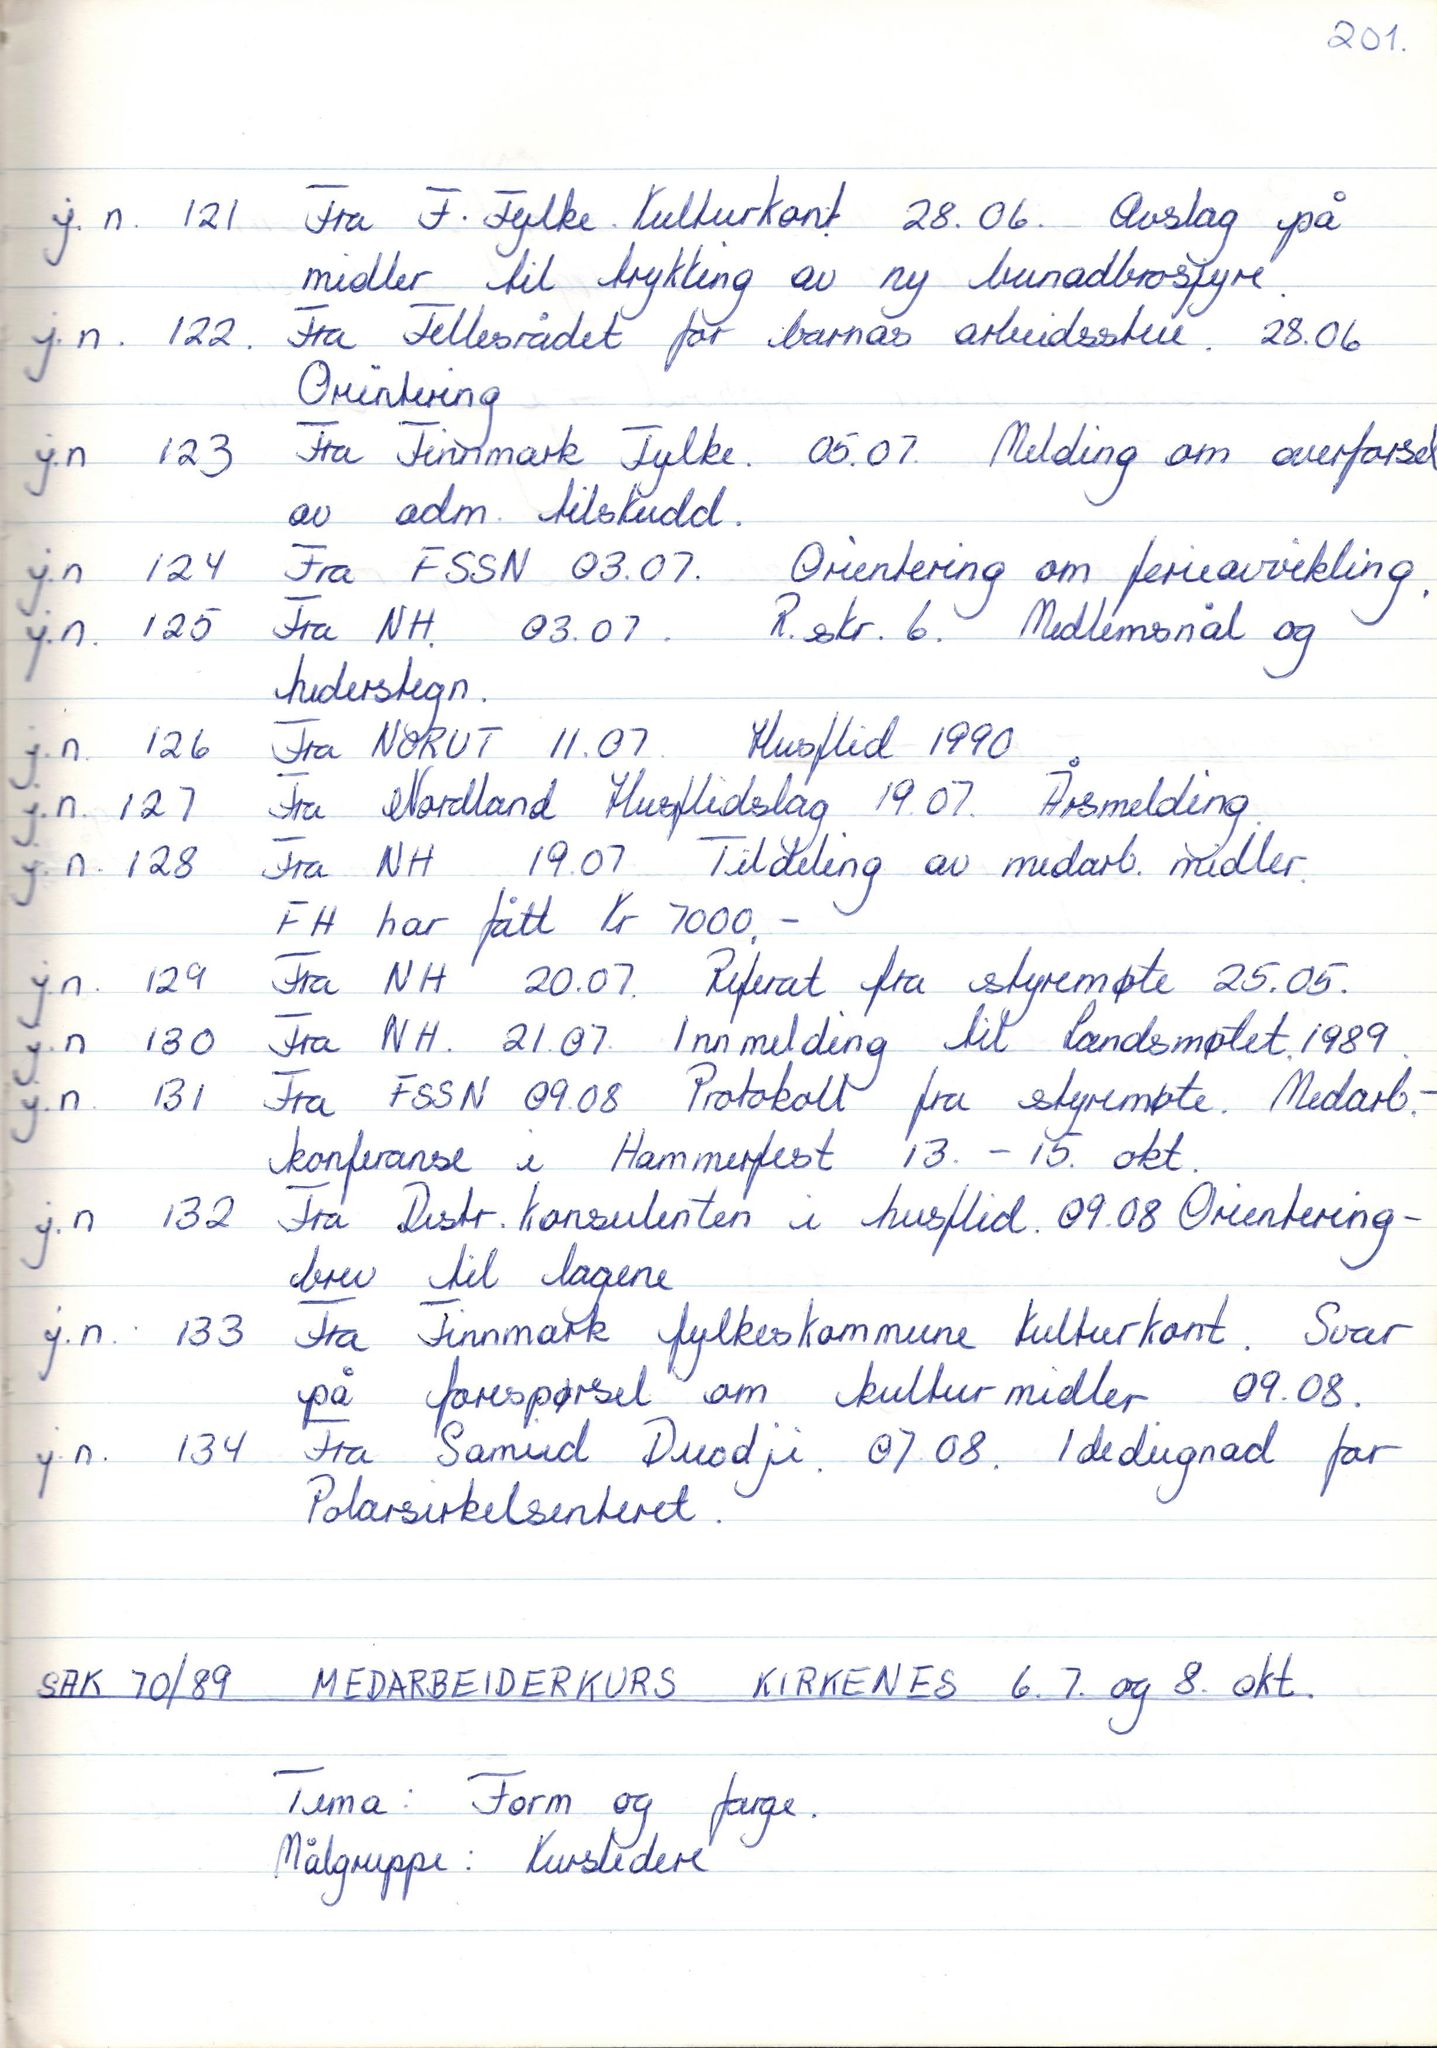 201.
j.n. 121 Fra F. Fylke. Kulturkont. 28.06. Avslag på
midler til trykking av ny bunadbrosjyre.
j.n. 122. Fra Fellesrådet for barnas arbeidsstue. 28.06
Orientering
j.n 123 Fra Finnmark Fylke. 05.07. Melding om overførsel
av adm. tilskudd.
j.n 124 Fra FSSN 03.07. Orientering om ferieavvikling.
j.n. 125 Fra NH. 03.07. R.skr. 6. Medlemsnål og
hederstegn.
j.n. 126 Fra NORUT 11.07. Husflid 1990
j.n. 127 Fra Nordland Husflidslag 19.07. Årsmelding.
j.n. 128 Fra NH 19.07 Tildeling av medarb. midler.
FH har fått kr 7000,-
j.n. 129 Fra NH 20.07. Referat fra styremøte 25.05.
j.n 130 Fra NH. 21.07. Innmelding til Landsmøtet 1989.
j.n. 131 Fra FSSN 09.08 Protokoll fra styremøte. Medarb.-
konferanse i Hammerfest 13. - 15. okt.
j.n 132 Fra Distr. konsulenten i husflid. 09.08 Orientering-
brev til lagene
j.n. 133 Fra Finnmark fylkeskommune kulturkont. Svar
på forespørsel om kulturmidler 09.08.
j.n. 134 Fra Samiid Duodji. 07.08. Idedugnad for
Polarsirkelsenteret.
SAK 70/89 MEDARBEIDERKURS KIRKENES 6. 7. og 8. okt.
Tema: Form og farge.
Målgruppe: Kursledere